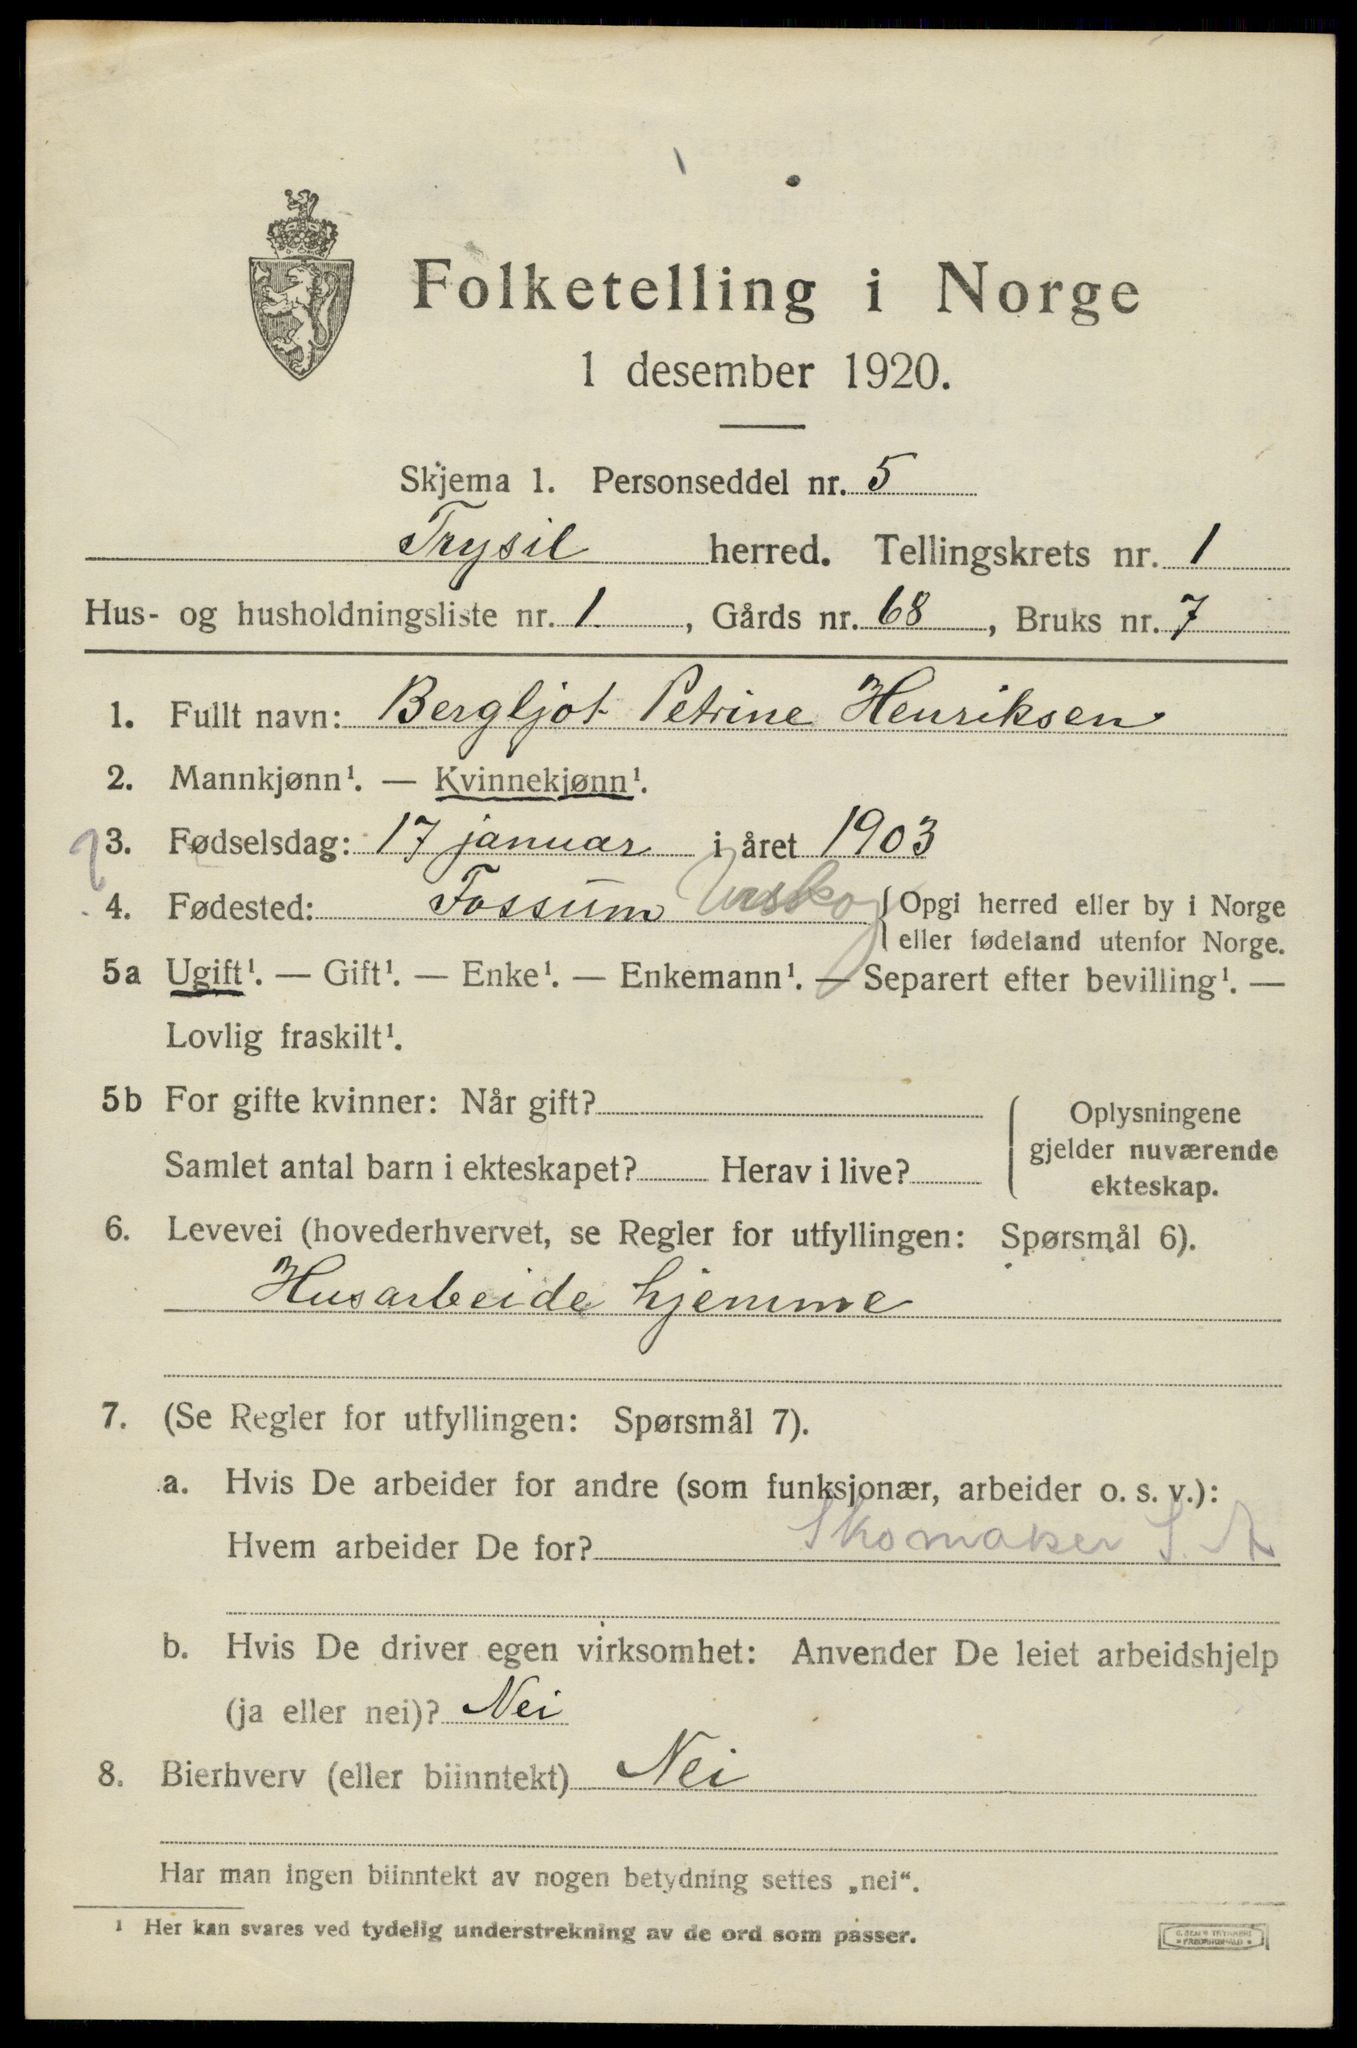 Folketelling i Norge
1 desember 1920.
Skjema 1. Personseddel nr. 5
Trysil herred. Tellingskrets nr. 1
Hus- og husholdningsliste nr. 1. , Gårds nr. 68 , Bruks nr. 7
1. Fullt navn: Bergljot Petrine Henriksen
2. Mannkjønn¹. — Kvinnekjønn¹.
3. Fødselsdag: 17 januar i året 1903
4. Fødested: Fossum Urskog { Opgi herred eller by i Norge
eller fødeland utenfor Norge.
5a Ugift¹. — Gift¹. — Enke¹. — Enkemann¹. — Separert efter bevilling¹. —
Lovlig fraskilt¹.
5b For gifte kvinner: Når gift?
Samlet antal barn i ekteskapet? Herav i live?
Oplysningene
gjelder nuværende
ekteskap.
6. Levevei (hovederhvervet, se Regler for utfyllingen: Spørsmål 6).
Husarbeide hjemme
7. (Se Regler for utfyllingen: Spørsmål 7).
a. Hvis De arbeider for andre (som funksjonær, arbeider o. s. v.):
Hvem arbeider De for? Skomaker S. A
b. Hvis De driver egen virksomhet: Anvender De leiet arbeidshjelp
(ja eller nei)? Nei
8. Bierhverv (eller biinntekt) Nei
Har man ingen biinntekt av nogen betydning settes „nei“.
¹ Her kan svares ved tydelig understrekning av de ord som passer.